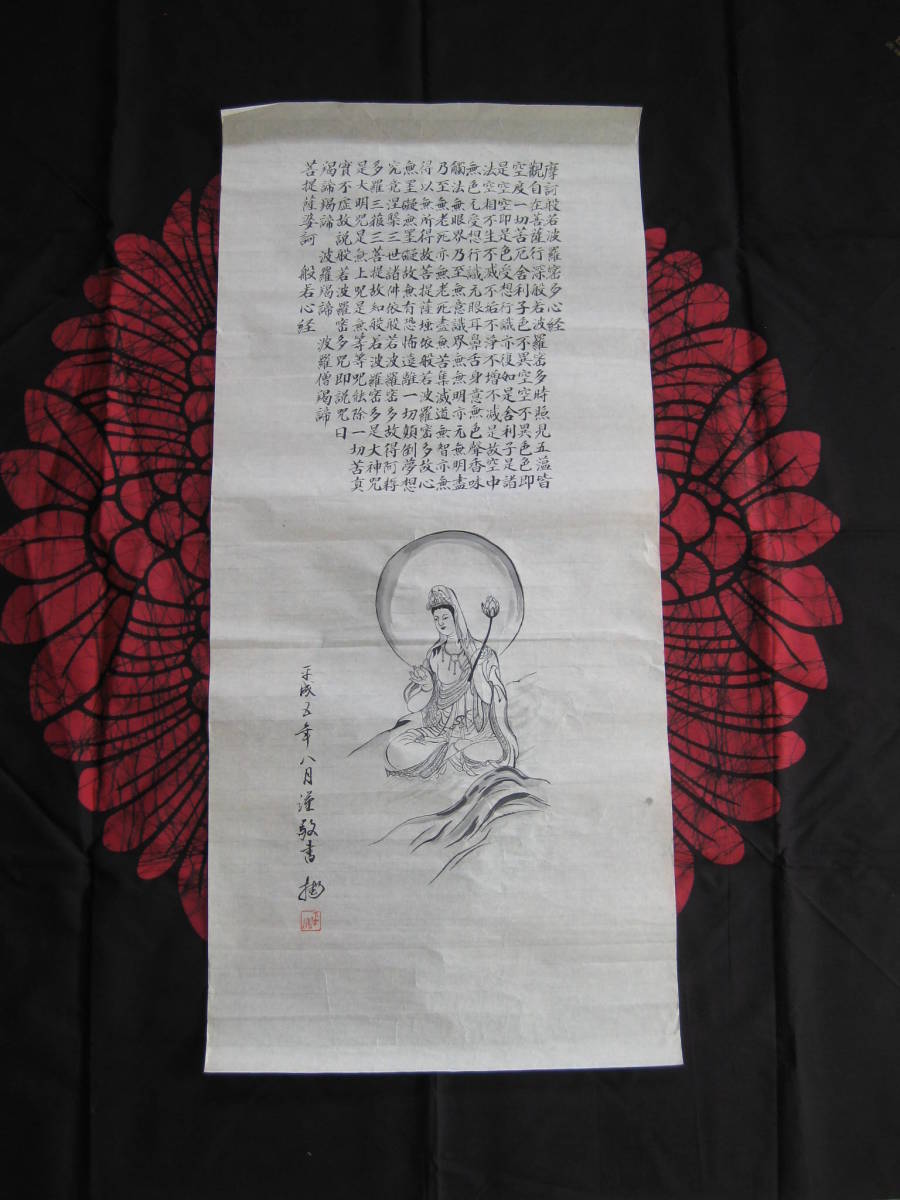 摩訶般若波羅密多心経
觀自在菩薩行深般若波羅密多時照見五蘊皆
空度一切苦厄舍利子色不異空空不異色色即
是空空即是色受想行識亦復如是舍利子是諸
法空相不生不滅不垢不淨不增不減是故空中
無色无受想行識无眼耳鼻舌身意無色聲香味
觸法無眼界乃至無意識界無無明亦无無明盡
乃至無老死亦無老死盡無苦集滅道無智亦無
得以無所得故菩提薩埵依般若波羅密多故心
無罣礙無罣礙故無有恐怖遠離一切顛倒夢想
究竟涅槃三世諸佛依般若波羅密多故得阿耨
多羅三藐三菩提故知般若波羅密多是大神咒
是大明咒是無上咒是無等等咒能除一切苦真
實不虛故説般若波羅密多咒即説咒曰
羯諦羯諦 波羅羯諦 波羅僧羯諦
菩提薩婆訶 般若心経
平成五年八月謹敬書